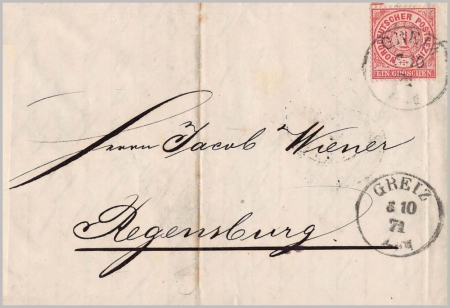 NORDDEUTSCHER POSTBEZIRK
1
EIN GROSCHEN
Herrn Jacob Wiener
GREIZ
5 10
71
Regensburg.